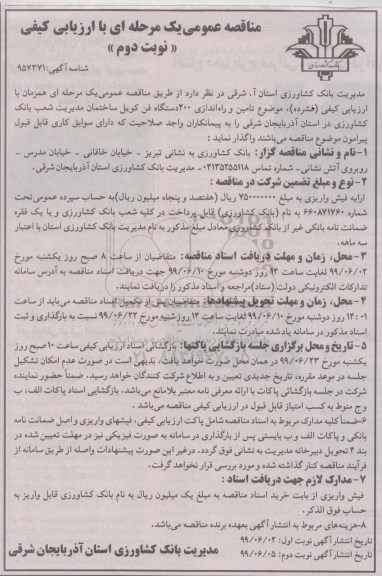 مناقصه عمومی یک مرحله ای با ارزیابی کیفی
« نوبت دوم »
شناسه آگهی: ۹۵۷۳۷۱
بانک کشاورزی
مدیریت بانک کشاورزی استان آ. شرقی در نظر دارد از طریق مناقصه عمومی یک مرحله ای همزمان با
ارزیابی کیفی (فشرده)، موضوع تامین و راه‌اندازی ۲۰۰ دستگاه فن کویل ساختمان مدیریت شعب بانک
کشاورزی در استان آذربایجان شرقی را به پیمانکاران واجد صلاحیت که دارای سوابق کاری قابل قبول
پیرامون موضوع مناقصه می‌باشند واگذار نماید :
۱- نام و نشانی مناقصه گزار: بانک کشاورزی به نشانی تبریز - خیابان خاقانی - خیابان مدرس -
روبروی آتش نشانی - شماره تماس ۰۴۱۳۵۲۵۵۱۱۸ - مدیریت بانک کشاورزی استان آذربایجان شرقی.
۲- نوع و مبلغ تضمین شرکت در مناقصه :
ارایه فیش واریزی به مبلغ ۷۵۰۰۰۰۰۰۰ ریال (هفتصد و پنجاه میلیون ریال) به حساب سپرده عمومی تحت
شماره ۶۶۰۸۷۱۷۶۰ به نام (بانک کشاورزی) قابل پرداخت در کلیه شعب بانک کشاورزی و یا یک فقره
ضمانت نامه بانکی غیر از بانک کشاورزی معادل مبلغ مذکور به نام مدیریت بانک کشاورزی استان با اعتبار
سه ماهه.
۳- محل، زمان و مهلت دریافت اسناد مناقصه: متقاضیان از ساعت ۸ صبح روز یکشنبه مورخ
۹۹/۰۶/۰۲ لغایت ساعت ۱۳ روز دوشنبه مورخ ۹۹/۰۶/۱۰ جهت دریافت اسناد مناقصه به آدرس سامانه
تدارکات الکترونیکی دولت (ستاد) مراجعه و اسناد مذکور را دریافت نمایند.
۴- محل، زمان و مهلت تحویل پیشنهادها: متقاضیان پس از تکمیل اسناد مناقصه می‌باید از ساعت
۱۳:۰۱ روز دوشنبه مورخ ۹۹/۰۶/۱۰ لغایت ساعت ۱۳ روز شنبه مورخ ۹۹/۰۶/۲۲ نسبت به بارگذاری و ثبت
اسناد مذکور در سامانه یاد شده مبادرت نمایند.
۵- تاریخ و محل برگزاری جلسه بازگشایی پاکتها: بازگشائی اسناد ارزیابی کیفی ساعت ۱۰ صبح روز
یکشنبه مورخ ۹۹/۰۶/۲۳ در همان محل صورت خواهد یافت، بدیهی است در صورت عدم امکان تشکیل
جلسه در موعد مقرره، تاریخ جدیدی تعیین و به اطلاع شرکت کنندگان خواهد رسید. ضمناً حضور نماینده
شرکت در جلسه بازگشائی پاکات با ارائه معرفی نامه معتبر بلامانع می‌باشد، بازگشایی اسناد پاکات الف، ب
و ج منوط به کسب امتیاز قابل قبول در ارزیابی کیفی مناقصه می‌باشد .
۶- ضمناً کلیه مدارک مربوط به اسناد مناقصه شامل پاکت ارزیابی کیفی، فیشهای واریزی و اصل ضمانت نامه
بانکی و پاکات الف و ب بایستی پس از بارگذاری در سامانه به صورت فیزیکی نیز در مهلت تعیین شده در
بند ۴ تحویل دبیرخانه مدیریت به نشانی فوق گردد. درغیر این صورت پیشنهادات واصله از طریق سامانه از
فرآیند مناقصه کنار گذاشته شده و مورد بررسی قرار نخواهد گرفت.
۷- مدارک لازم جهت دریافت اسناد :
فیش واریزی از بابت خرید اسناد مناقصه به مبلغ یک میلیون ریال به نام بانک کشاورزی قابل واریز به
حساب فوق الذکر .
۸- هزینه‌های مربوط به انتشار آگهی بعهده برنده مناقصه می‌باشد.
تاریخ انتشار آگهی نوبت اول: ۹۹/۰۶/۰۲
تاریخ انتشار آگهی نوبت دوم: ۹۹/۰۶/۰۵
مدیریت بانک کشاورزی استان آذربایجان شرقی